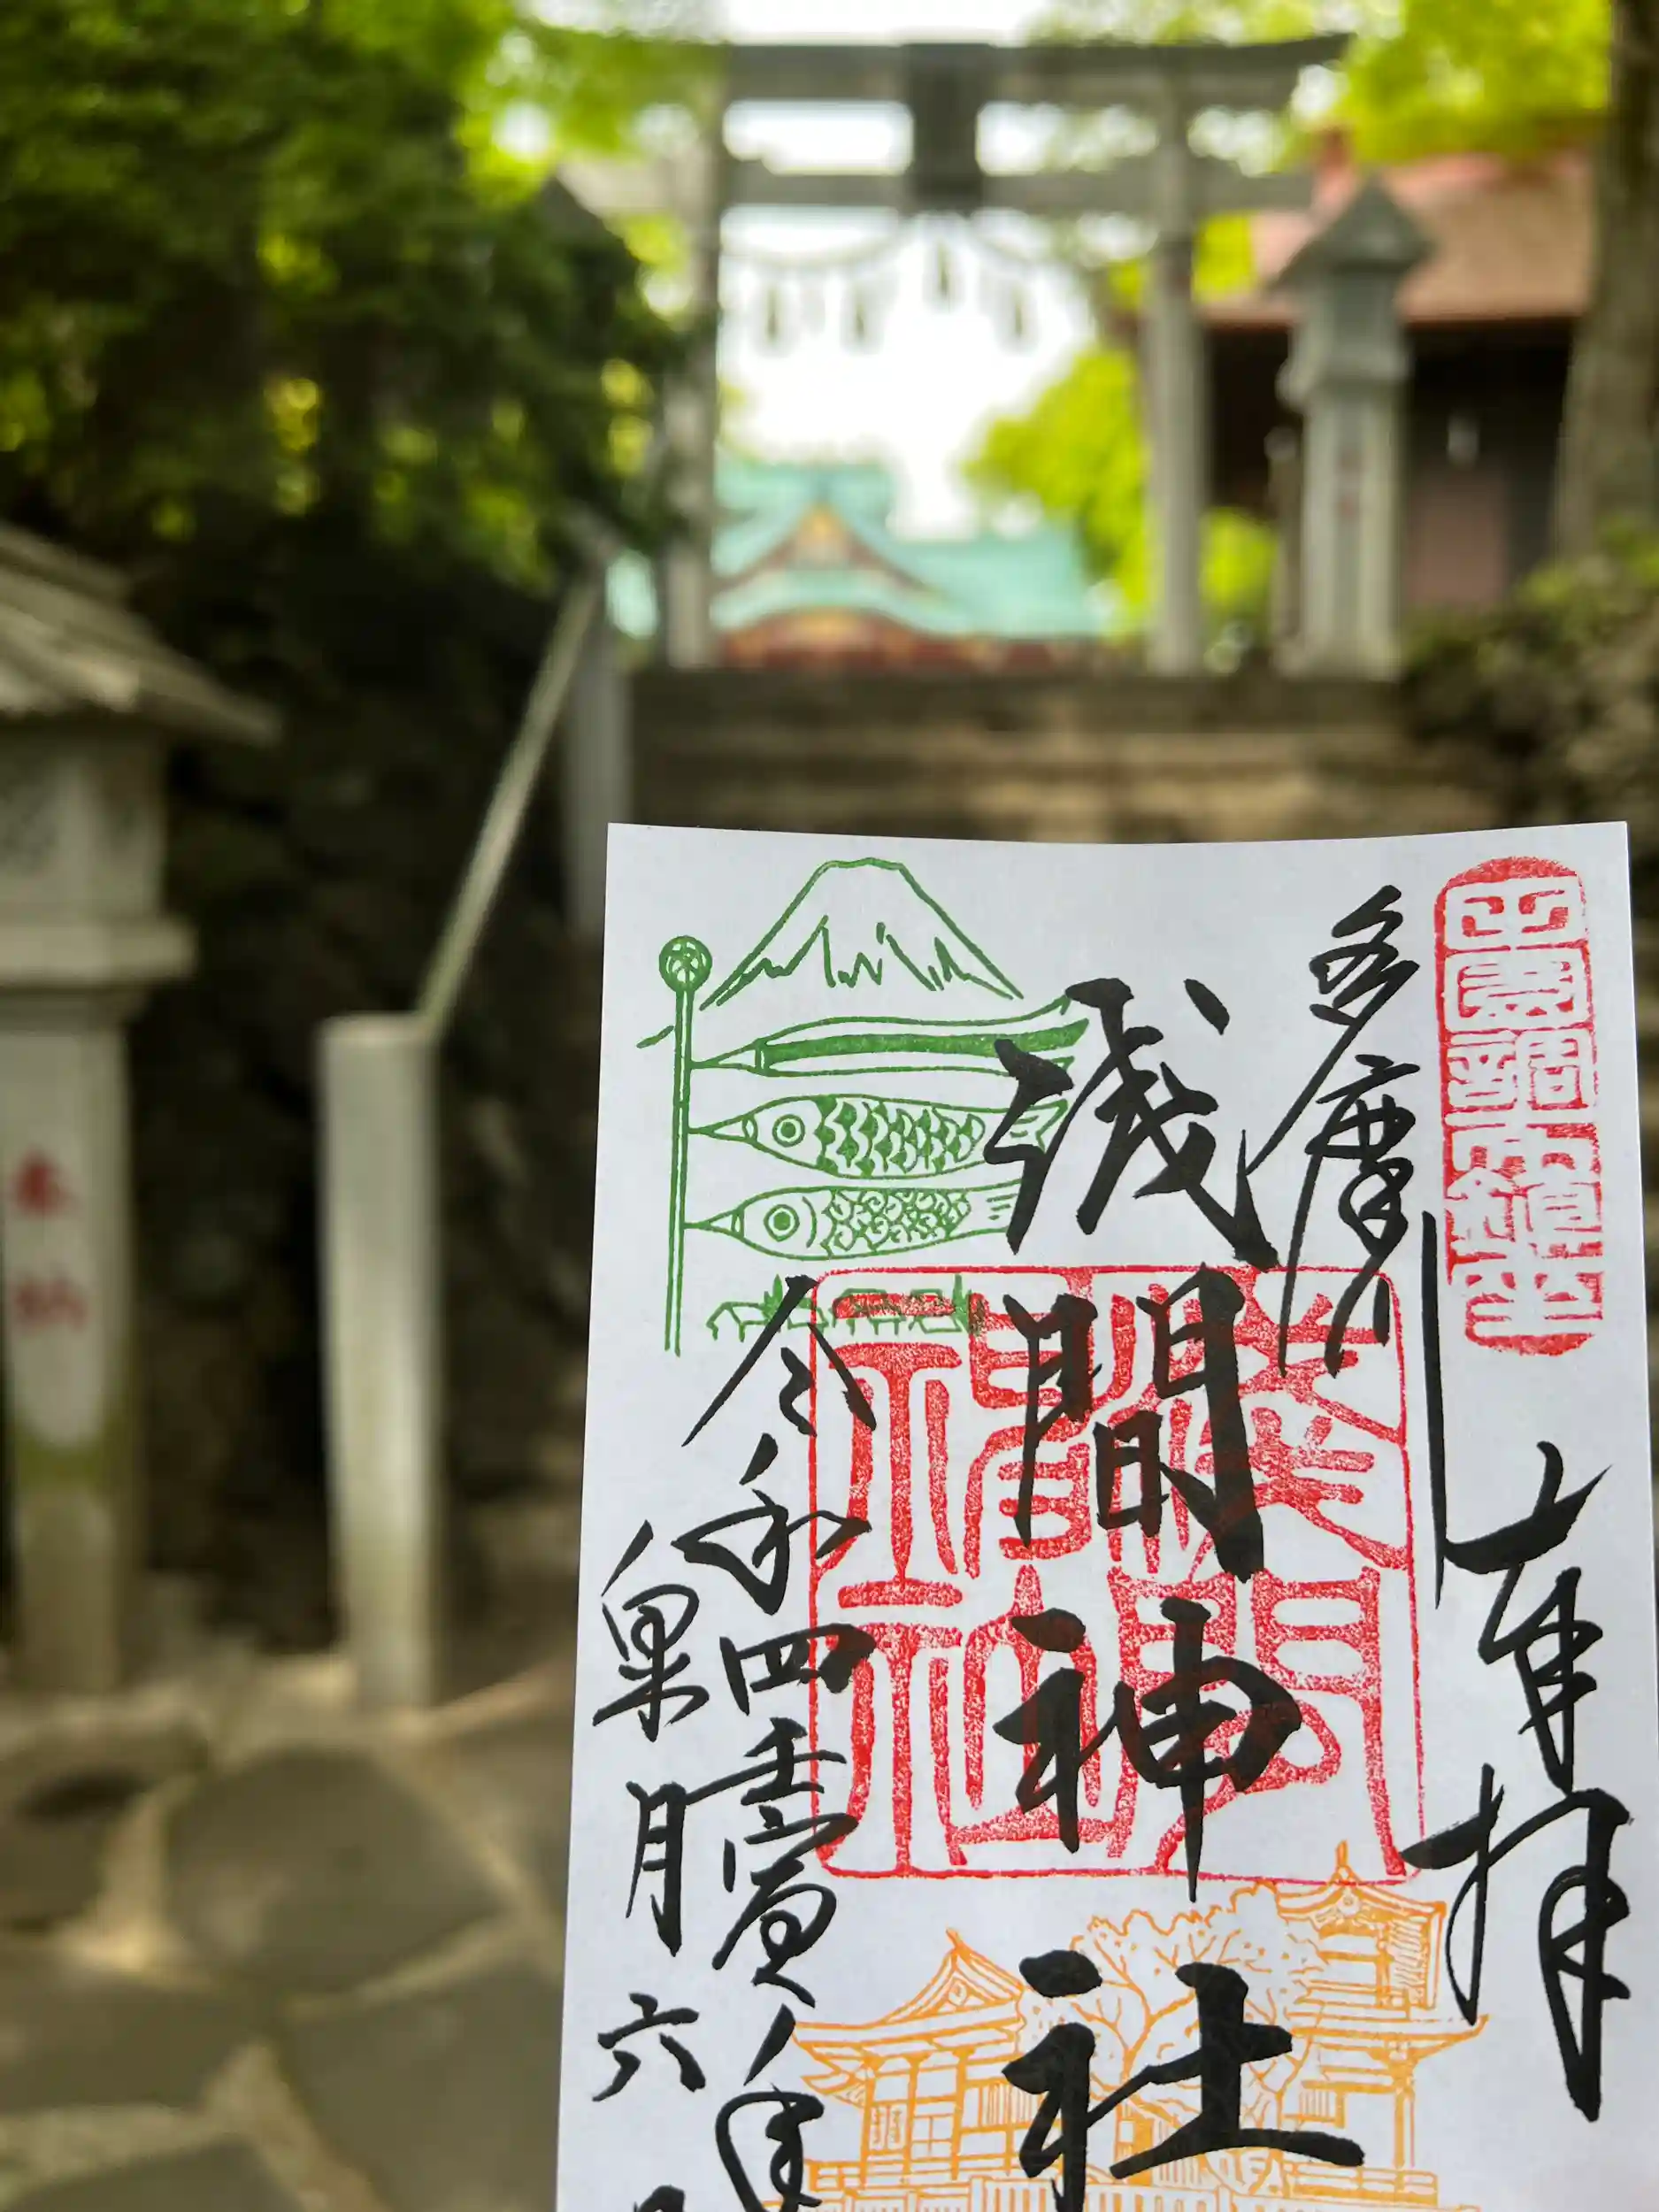 田園調布鎮座
奉拝
多摩川
浅間神社
淺間神社
令和四壬寅年
皐月六
奉